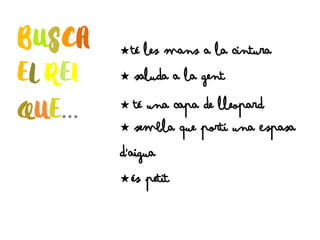 BUSCA
EL REI
QUE...
★té les mans a la cintura
★ saluda a la gent
★ té una capa de lleopard
★ sembla que porti una espasa
d'aigua
★és petit